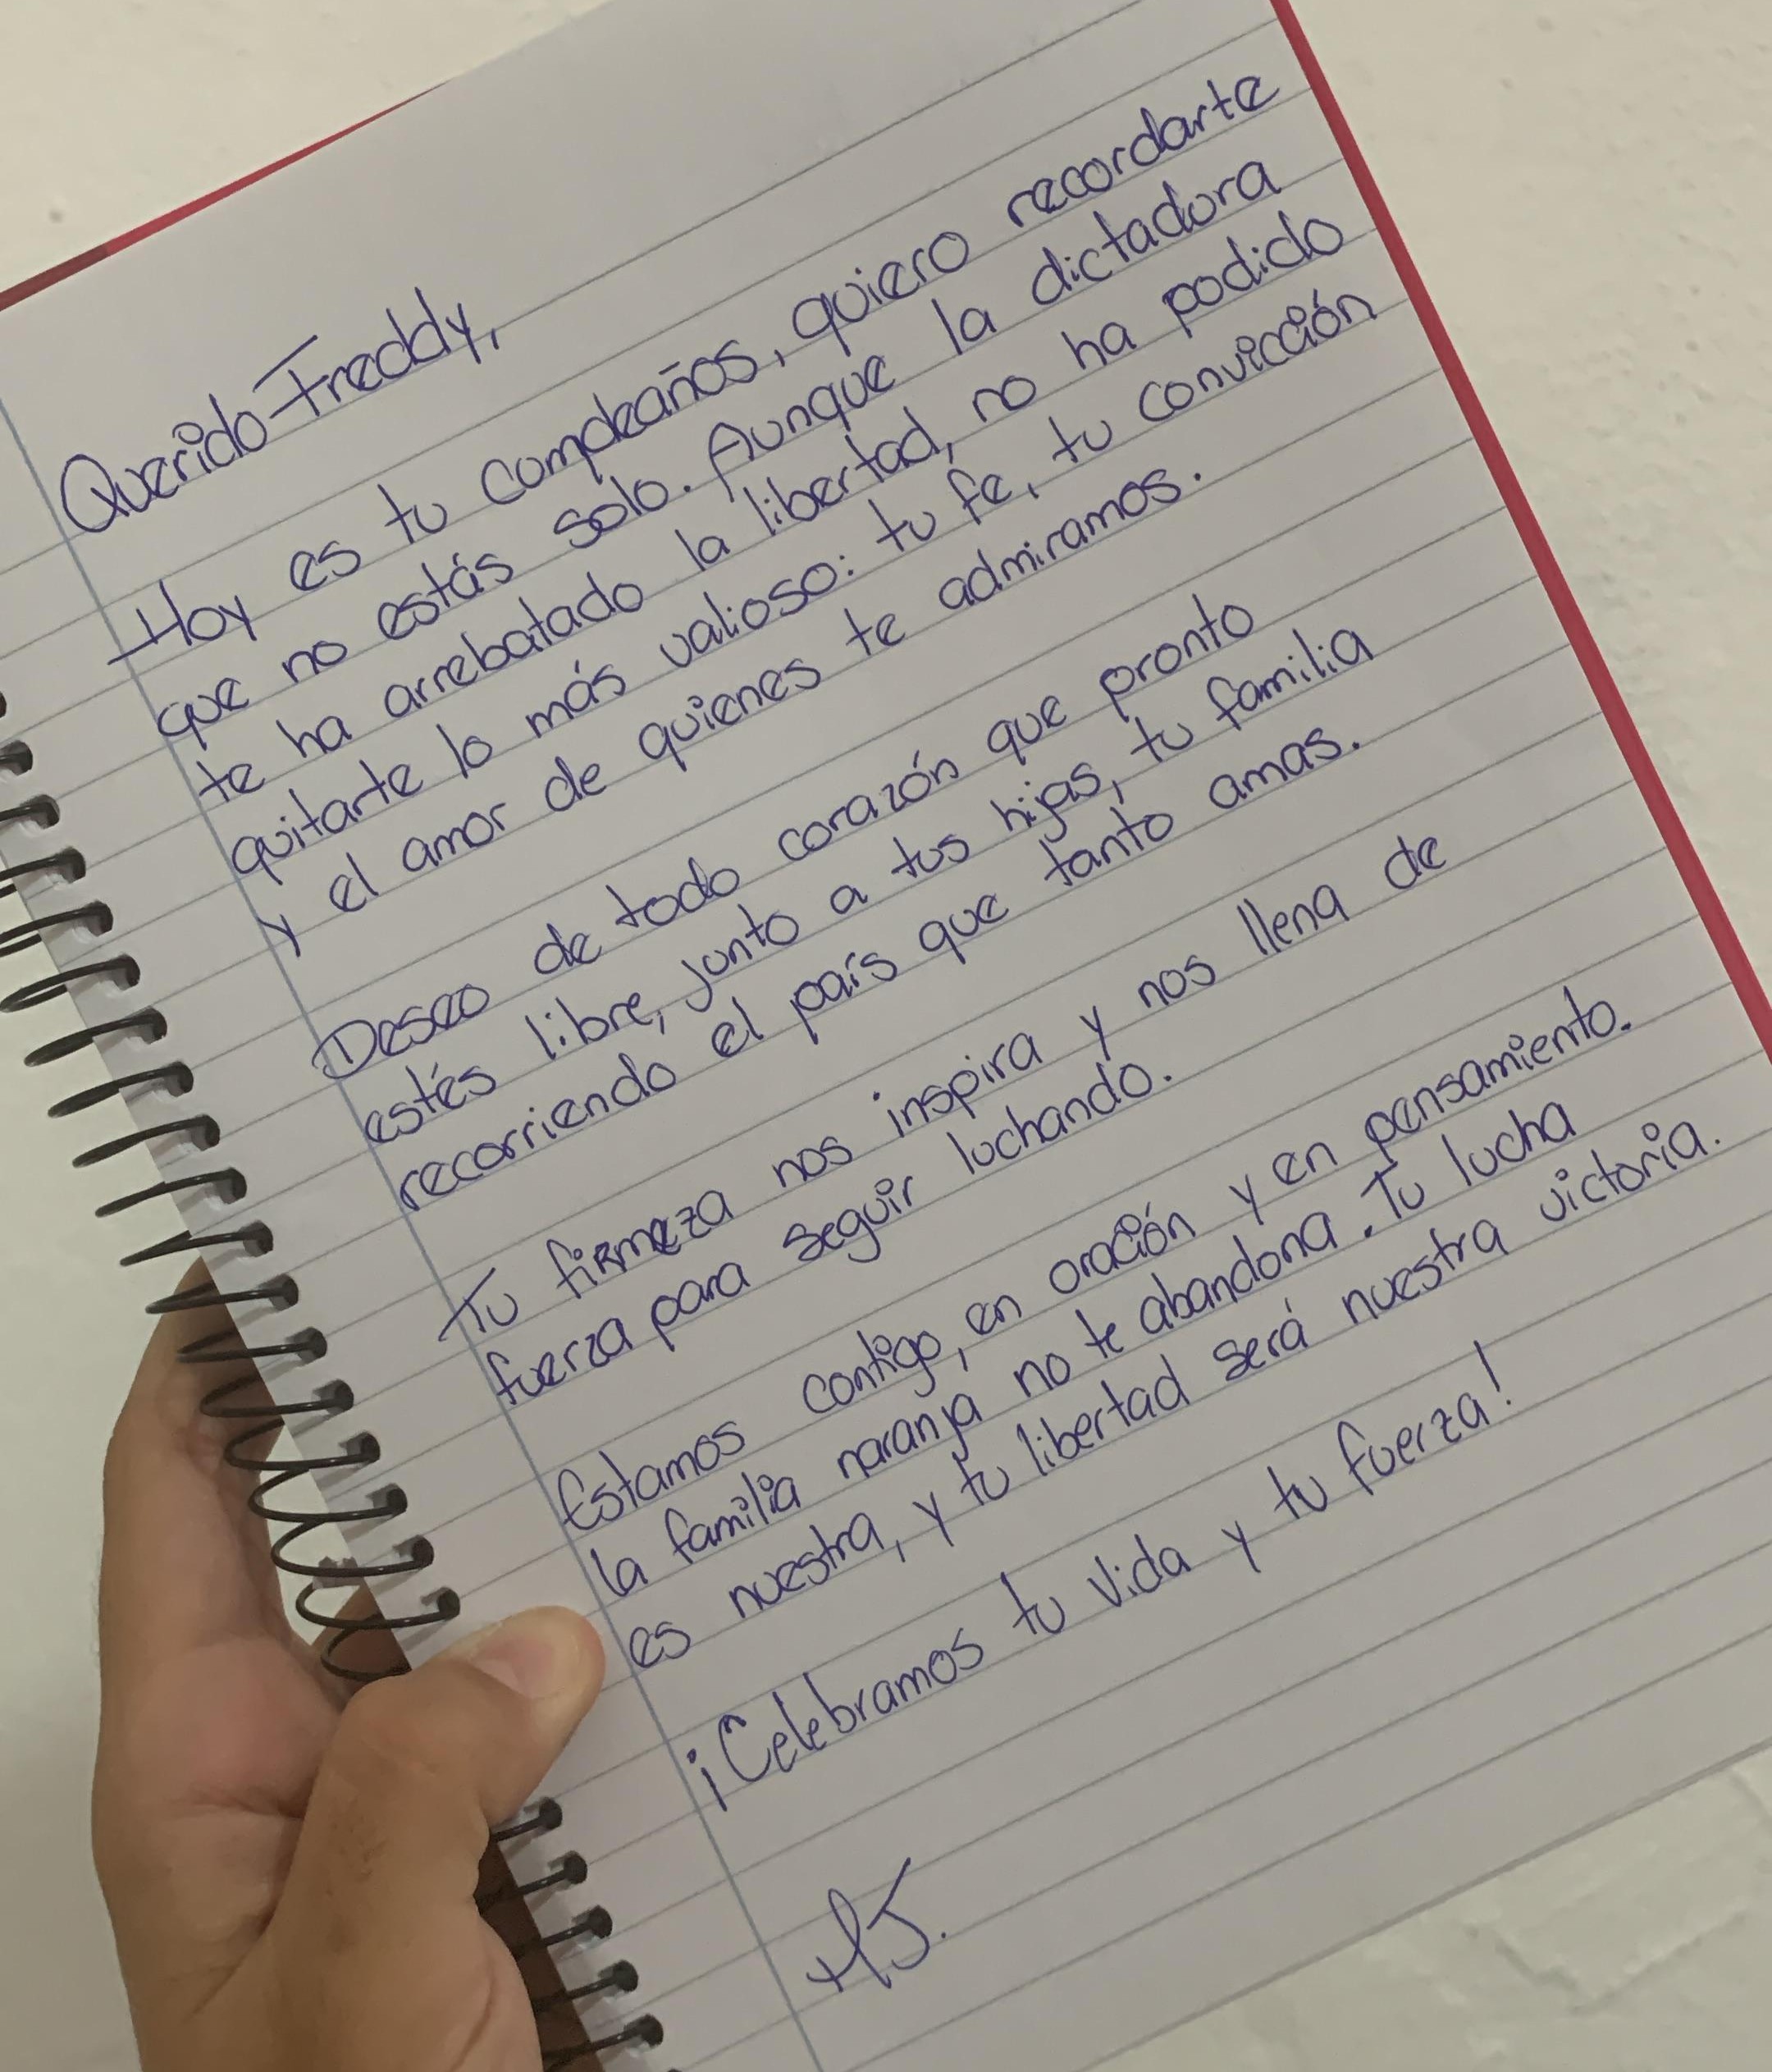 Querido Freddy,
Hoy es tu cumpleaños, quiero recordarte
que no estás solo. Aunque la dictadura
te ha arrebatado la libertad, no ha podido
quitarte lo más valioso: tu fe, tu convicción
y el amor de quienes te admiramos.
Deseo de todo corazón que pronto
estés libre, junto a tus hijas, tu familia
recorriendo el país que tanto amas.
Tu firmeza nos inspira y nos llena de
fuerza para seguir luchando.
Estamos contigo, en oración y en pensamiento.
la familia naranja no te abandona. Tu lucha
es nuestra, y tu libertad será nuestra victoria.
¡Celebramos tu vida y tu fuerza!